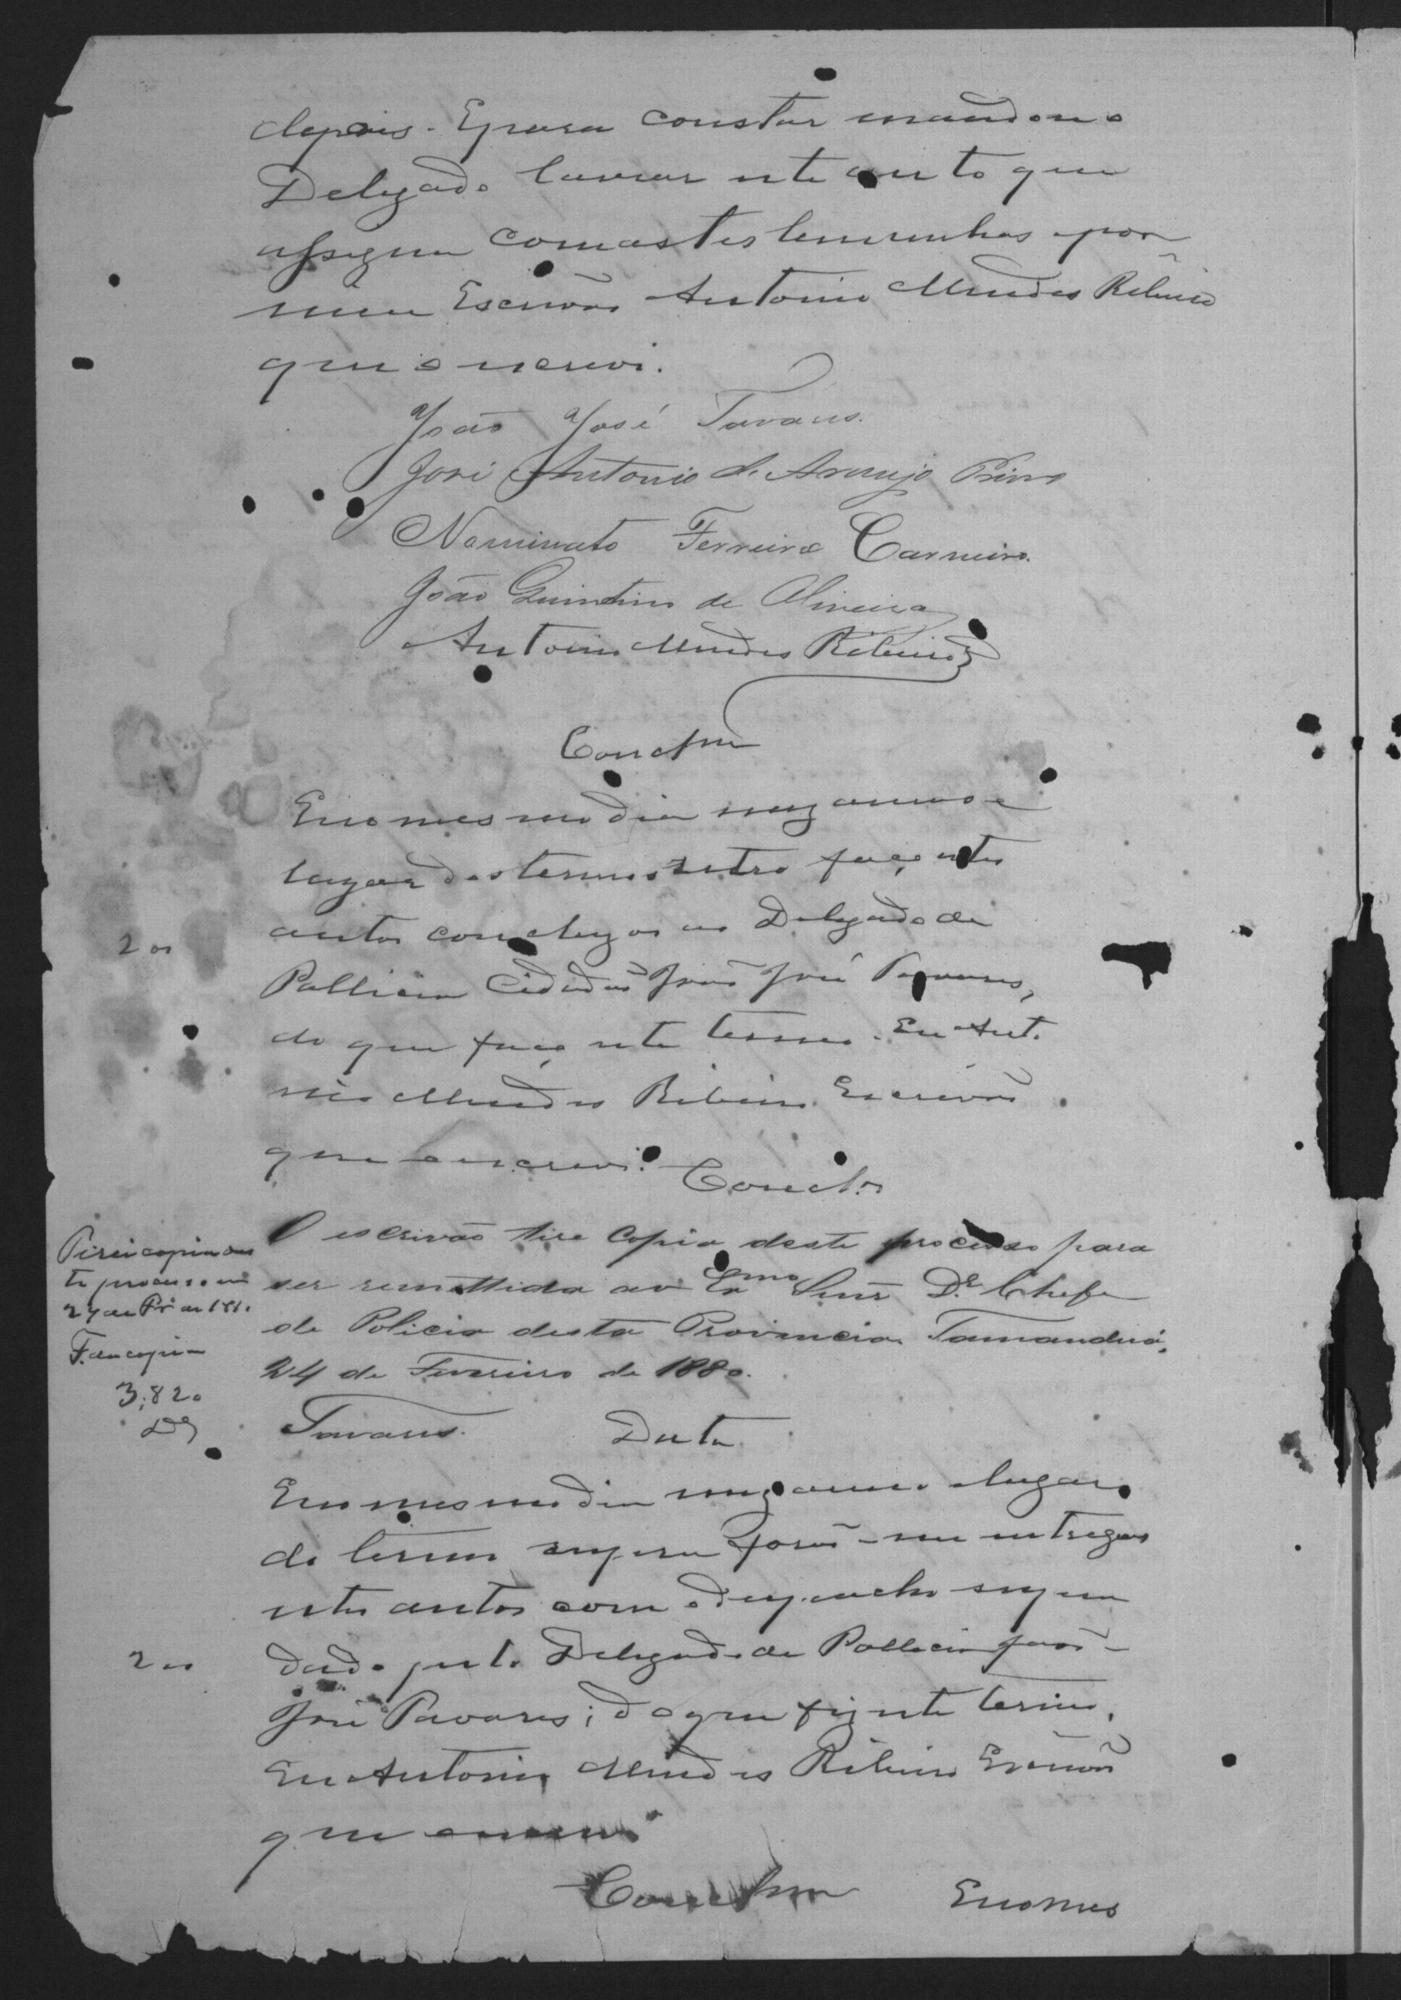 depois. E para constar mandou o
Delegado lavrar este auto que
assigna com as testemunhas e por
mim Escrivão Antonio Mendes Ribeiro
que o escrevi.
João José Tavares.
José Antonio de Araujo Primo
Nominato Ferreira Carneiro.
João Quintino de Oliveira
Antonio Mendes Ribeiro
Conclm
E no mesmo dia mez anno e
lugar do termo retro faço estes
autos conclusos ao Delegado de
200
Pollicia Cidadão João José Tavares,
do que faço este termo. Eu Anto
nio Mendes Ribeiro Escrivão
que o escrevi.
Conclos
O escrivão tire copia deste processo para
ser remettida ao Exmo Senr Dr Chefe
de Policia desta Provincia. Tamanduá,
24 de Fevereiro de 1880.
Tavares.
Tirei copia des
te processo em
27 de Fro de 1880.
F. da copia
3,820
Data
E no mesmo dia mez anno e lugar
do termo supra forão-me entregues
estes autos com o despacho supra
200
dado pelo Delegado de Pollicia João
José Tavares; do que fiz este termo.
Eu Antonio Mendes Ribeiro Escrivão
que o escrevi
Conclm
E no mes